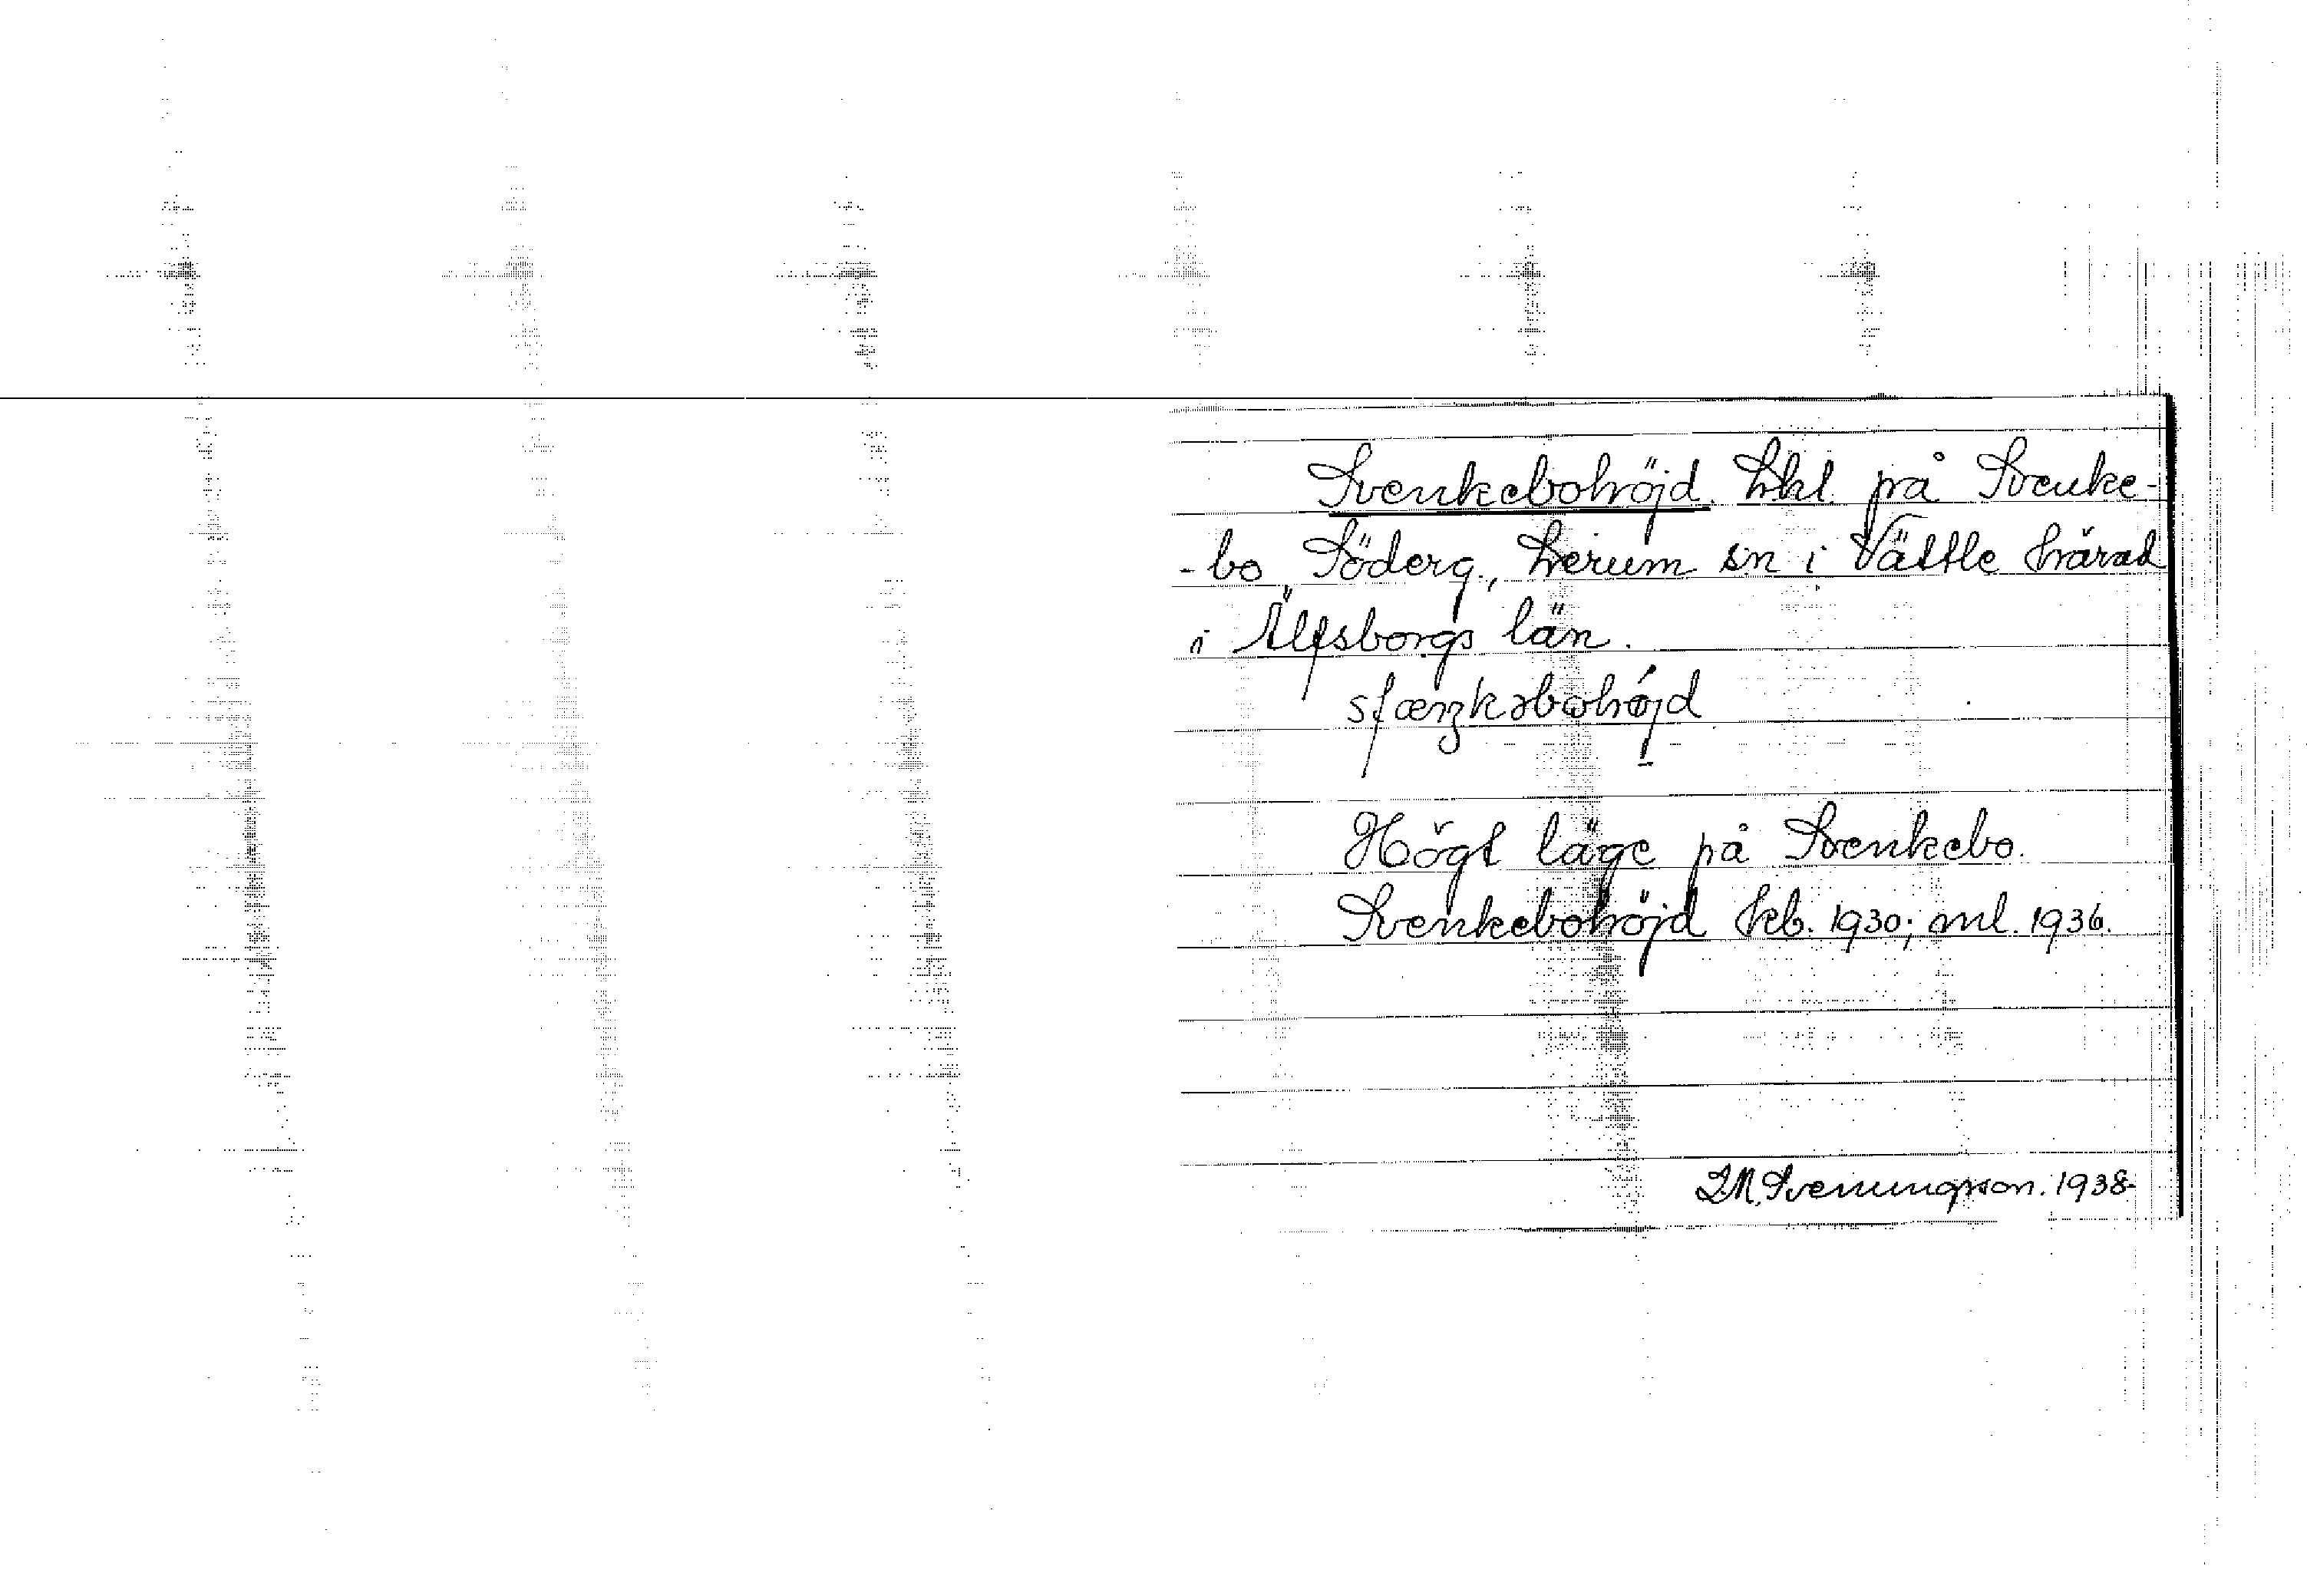 Svenkebohöjd. Lhl. på Svenke-
-bo, Söderg., Lerum sn i Vättle härad
i Älfsborgs län.
Högt läge på Svenkebo.
Svenkebohöjd kb. 1930; ml. 1936.
I.M. Sveningsson. 1938